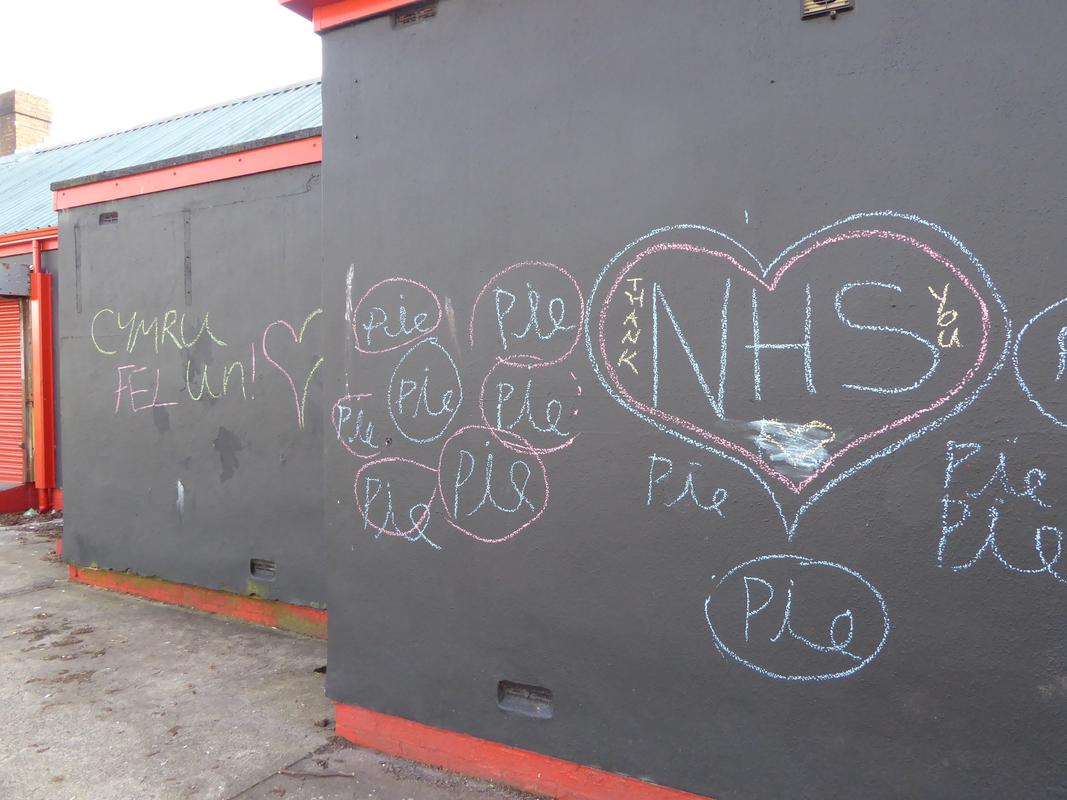 CYMRU
FEL Un!
Pie
Pie
Pie
Pie
Pie
Pie
Pie
THANK
NHS
You
Pie
Pie
Pie
Pie